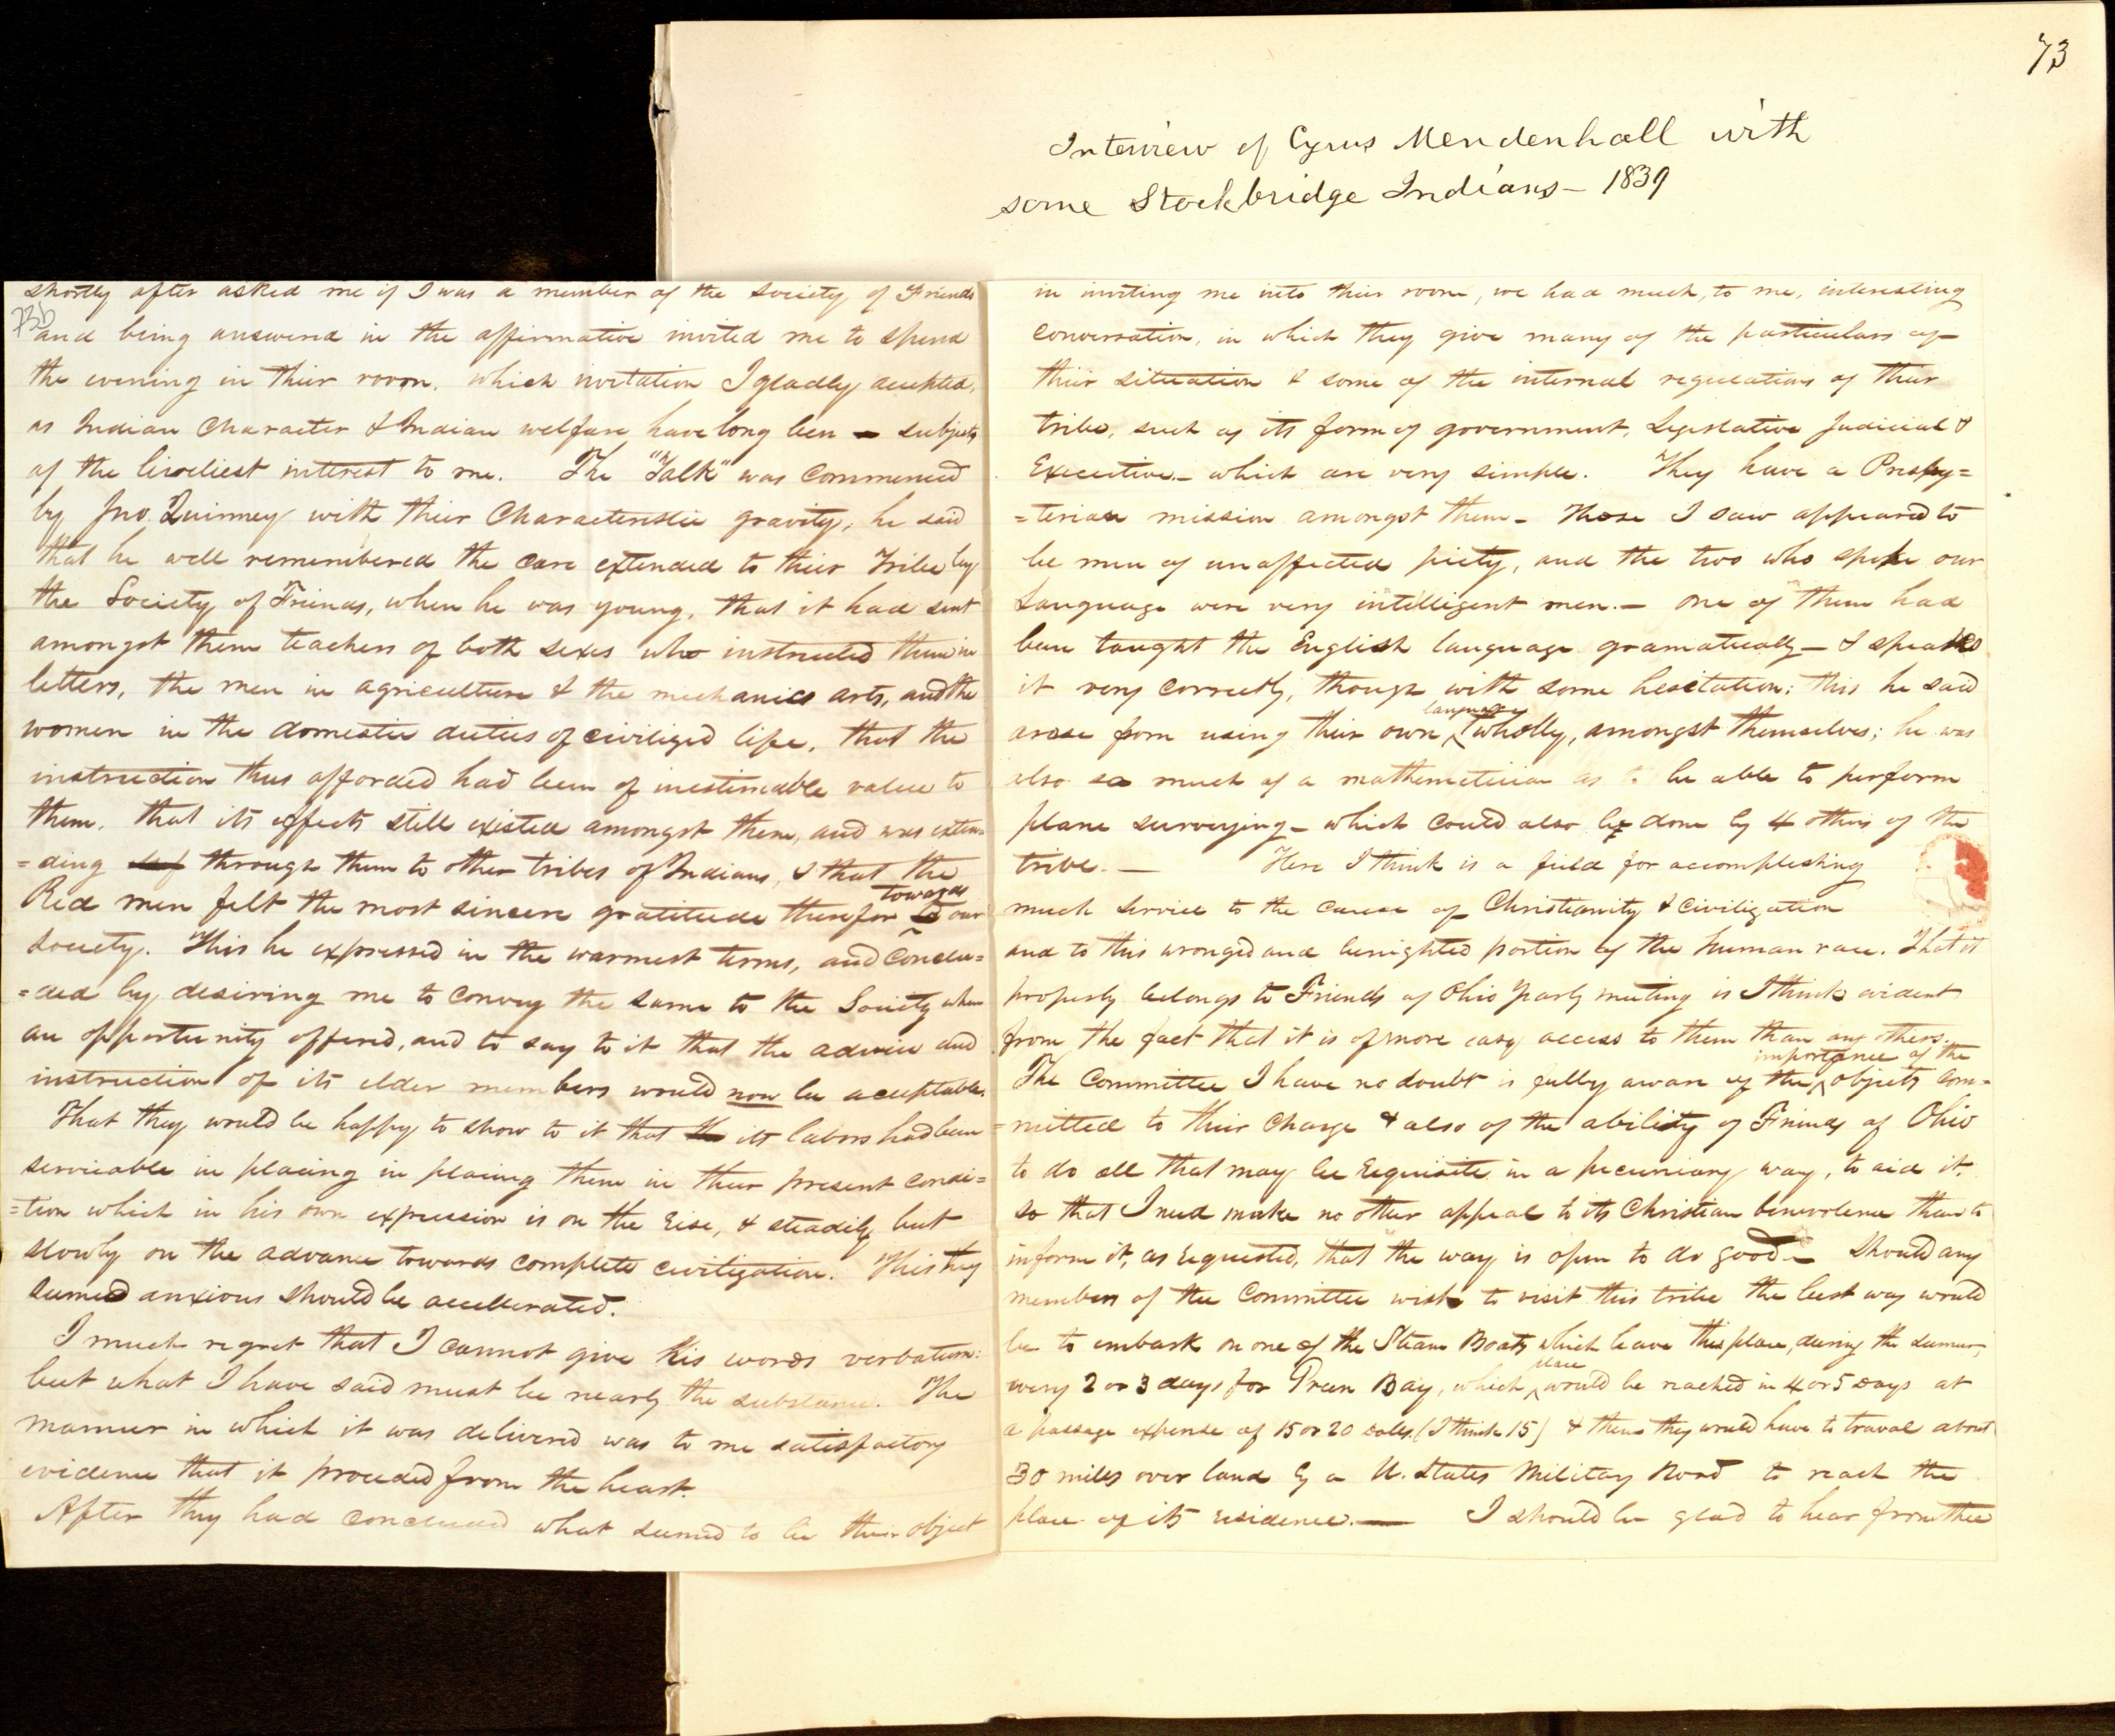 73
Interview of Cyrus Mendenhall with
some Stockbridge Indians - 1839
shortly after asked me if I was a member of the Society of Friends
73b
and being answered in the affirmative invited me to spend
the evening in their room. which invitation I gladly accepted,
as Indian Character & Indian welfare have long been subjects
of the liveliest interest to me. The "Talk" was commenced
by Jno. Quinney with their Characteristic gravity, he said
that he well remembered the care extended to their Tribe by
the Society of Friends, when he was young, that it had sent
amongst them teachers of both sexes who instructed them in
letters, the men in agriculture & the mechanics arts, and the
women in the domestic duties of civilized life, that the
instruction thus afforded had been of inestimable value to
them. that its effects still existed amongst them, and was exten=
=ding through them to other tribes of Indians, & that the
Red men felt the most sincere gratitude therefor towards our
Society. This he expressed in the warmest terms, and Conclu=
=ded by desiring me to convey the same to the Society when
an opportunity offered, and to say to it that the advice and
instruction of its elder members would now be acceptable.
That they would be happy to show to it that its labors had been
servicable in placing in placing them in their present condi=
=tion which in his own expression is on the rise, & steadily but
slowly on the advance towards complete civilization. This they
seemed anxious should be accellerated.
I much regret that I cannot give his words verbatim:
but what I have said must be nearly the substance. The
manner in which it was delivered was to me satisfactory
evidence that it proceeded from the heart.
After they had concluded what seemed to be their object
in inviting me into their room, we had much, to me, interesting
conversation, in which they give many of the particulars of
their situation & some of the internal regulations of their
tribe, such as its form of government, Legislative Judicial &
Executive - which are very simple. They have a Presby=
=terian mission amongst them - Those I saw appeared to
be men of unaffected piety, and the two who spoke our
Language were very intelligent men. - one of them had
been taught the English language gramatically - & speaks
it very correctly, though with some hesitation; this he said
arose from using their own language wholly, amongst themselves; he was
also so much of a mathematician as to be able to perform
plane surveying - which could also be done by 4 others of the
tribe. — Here I think is a field for accomplishing
much service to the cause of Christianity & civilization
and to this wronged and benighted portion of the human race. That it
properly belongs to Friends of Ohio Yearly meeting is I think evident
from the fact that it is of more easy access to them than any others.
The Committee I have no doubt is fully aware of the importance of the objects com=
=mitted to their charge & also of the ability of Friends of Ohio
to do all that may be requisite in a pecuniary way, to aid it.
so that I need make no other appeal to its Christian benevolence than to
inform it, as requested, that the way is open to do good. - Should any
members of the Committee wish to visit this tribe the best way would
be to embark on one of the Steam Boats, which leave this place, during the summer,
every 2 or 3 days for Green Bay, which place would be reached in 4 or 5 days at
a passage expense of 15 or 20 dolls. (I think 15) & thence they would have to travel about
30 miles over land by a U. States Military Road to reach the
place of its residence. — I should be glad to hear from thee